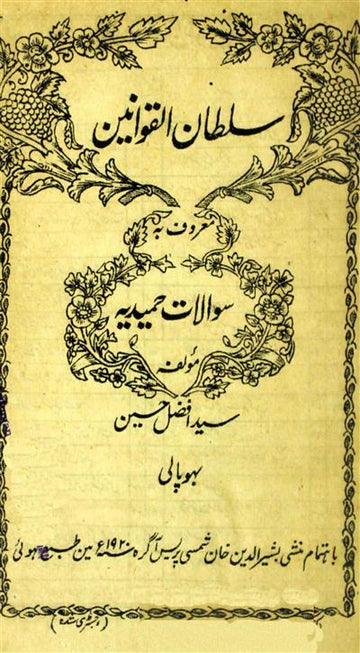 سلطان القوانین
معروف بہ
سوالات حمیدیہ
مؤلفہ
سید افضل حسین
بھوپالی
باہتمام منشی بشیرالدین خان شمسی پریس آگرہ سنہ ۱۹۲۰ء مین طبع ہوئی
(رجسٹری شدہ)